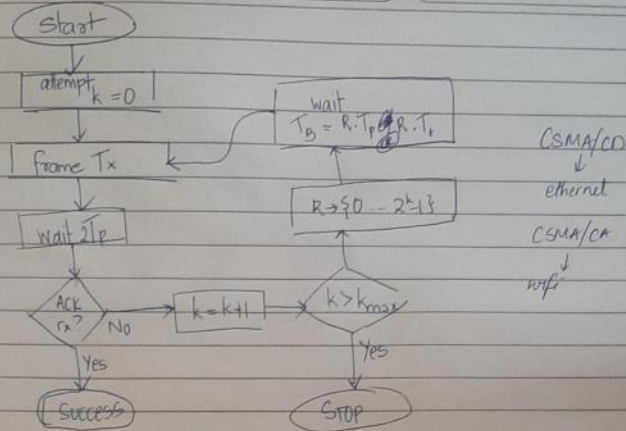 Start
attempt k = 0
frame Tx
wait 2Tp
ACK
rx?
No
Yes
Success
k = k+1
k > kmax
Yes
STOP
R → {0 -- 2^k-1}
wait
T_B = R.Tp or R.Tt
CSMA/CD
↓
ethernet
CSMA/CA
↓
wifi